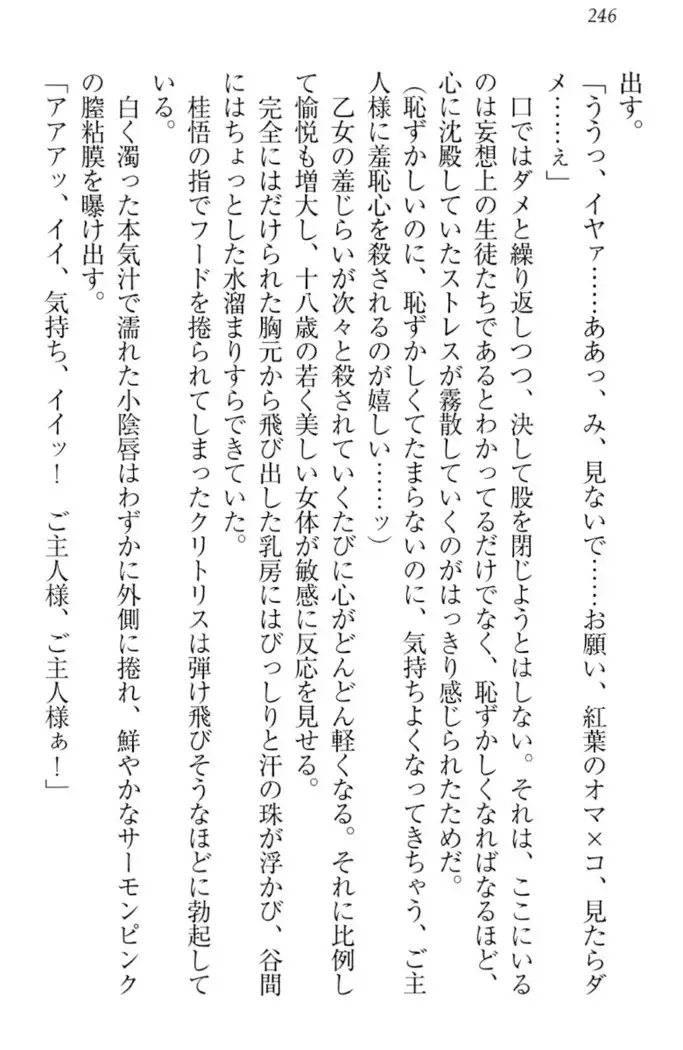 246
出す。
「ううっ、イヤァ……ああっ、み、見ないで……お願い、紅葉のオマ×コ、見たらダ
メ……ぇ」
　口ではダメと繰り返しつつ、決して股を閉じようとはしない。それは、ここにいる
のは妄想上の生徒たちであるとわかってるだけでなく、恥ずかしくなればなるほど、
心に沈殿していたストレスが霧散していくのがはっきり感じられたためだ。
（恥ずかしいのに、恥ずかしくてたまらないのに、気持ちよくなってきちゃう、ご主
人様に羞恥心を殺されるのが嬉しい……ッ）
　乙女の羞じらいが次々と殺されていくたびに心がどんどん軽くなる。それに比例し
て愉悦も増大し、十八歳の若く美しい女体が敏感に反応を見せる。
　完全にはだけられた胸元から飛び出した乳房にはびっしりと汗の珠が浮かび、谷間
にはちょっとした水溜まりすらできていた。
　桂悟の指でフードを捲られてしまったクリトリスは弾け飛びそうなほどに勃起して
いる。
　白く濁った本気汁で濡れた小陰唇はわずかに外側に捲れ、鮮やかなサーモンピンク
の膣粘膜を曝け出す。
「アアアッ、イイ、気持ち、イイッ！　ご主人様、ご主人様ぁ！」